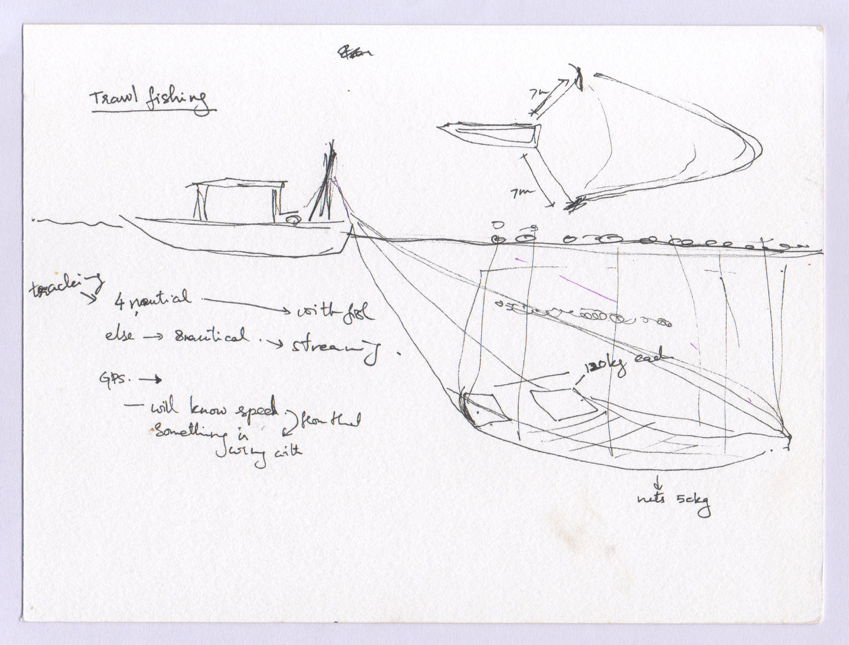 Trawl fishing
7m
7m
tracking
4 nautial → with fish
else → 8nautical → streaming.
GPS. →
— will know speed
something is
from that
wrong with
120kg each
nets 50kg